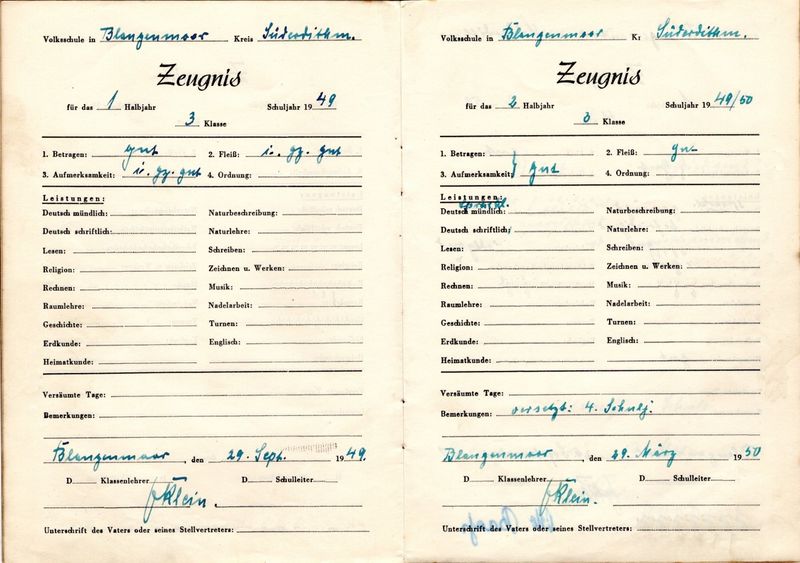 Volksschule in Blangenmoor Kreis Süderdithm.
Zeugnis
für das 1 Halbjahr Schuljahr 1949
3 Klasse
1. Betragen: gut 2. Fleiß: i. gz. gut
3. Aufmerksamkeit: i. gz. gut 4. Ordnung:
Leistungen:
Deutsch mündlich: Naturbeschreibung:
Deutsch schriftlich: Naturlehre:
Lesen: Schreiben:
Religion: Zeichnen u. Werken:
Rechnen: Musik:
Raumlehre: Nadelarbeit:
Geschichte: Turnen:
Erdkunde: Englisch:
Heimatkunde:
Versäumte Tage:
Bemerkungen:
Blangenmoor, den 29. Sept. 1949.
D Klassenlehrer D Schulleiter
Klein.
Unterschrift des Vaters oder seines Stellvertreters:
Volksschule in Blangenmoor Kr Süderdithm.
Zeugnis
für das 2 Halbjahr Schuljahr 1949/50
3 Klasse
1. Betragen: 2. Fleiß: gut
3. Aufmerksamkeit: gut 4. Ordnung:
Leistungen:
Deutsch mündlich: Naturbeschreibung:
Deutsch schriftlich: Naturlehre:
Lesen: Schreiben:
Religion: Zeichnen u. Werken:
Rechnen: Musik:
Raumlehre: Nadelarbeit:
Geschichte: Turnen:
Erdkunde: Englisch:
Heimatkunde:
Versäumte Tage:
Bemerkungen: versetzt: 4. Schulj.
Blangenmoor, den 29. März 1950
D Klassenlehrer D Schulleiter
Klein.
Unterschrift des Vaters oder seines Stellvertreters: